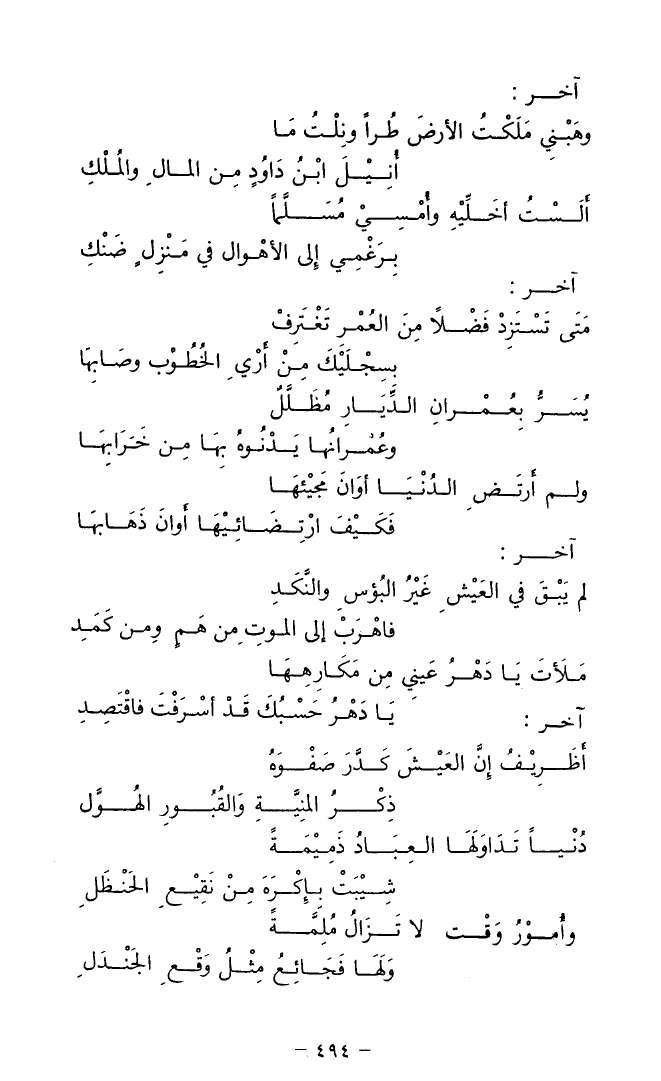 آخر :
وهَبْني مَلَكْتُ الأرضَ طُراً ونِلْتُ مَا
أُنِيْلَ ابْنُ دَاوُدٍ مِن المالِ والمُلْكِ
أَلَسْتُ أخَلِّيْهِ وأُمْسِيْ مُسَلَّماً
بِرَغْمِي إلى الأهْوالِ في مَنْزِلٍ ضَنْكِ
آخر :
مَتَى تَسْتَزِدْ فَضْلاً مِنَ العُمْرِ تَغْتَرِفْ
بِسَجْلَيْكَ مِنْ أَرْيِ الخُطُوْبِ وصَابِهَا
يُسَرُّ بِعُمْرانِ الدِّيَارِ مُظَلَّلُ
وعُمْرانُها يَدْنُوهُ بِهَا مِن خَرَابِهَا
ولم أَرتَضِ الدُنْيَا أوَانَ مَجِيْئِهَا
فَكَيْفَ ارْتِضَائِيْهَا أَوانَ ذَهَابِهَا
آخر :
لم يَبْقَ في العَيْشِ غَيْرُ البُؤْسِ والنَّكَدِ
فاهْرَبْ إلى الموتِ مِن هَمٍ ومِن كَمَدِ
مَلَأتَ يَا دَهْرُ عَيني مِن مَكَارِهِهَا
يَا دَهْرُ حَسْبُكَ قَدْ أسْرَفْتَ فاقْتَصِدِ
آخر :
أظَرِيْفُ إنَّ العَيْشَ كَدَّرَ صَفْوَهُ
ذِكْرُ المَنِيَّةِ والقُبُورِ الهُوَّلِ
دُنْياً تَدَاوَلَهَا العِبَادُ ذَمِيْمَةً
شِيْبَتْ بِإِكْرَهَ مِنْ نَقِيْعِ الحَنْظَلِ
وأمُوْرُ وَقْت لا تَزَالُ مُلِمَّةً
وَلَهَا فَجَائِعُ مِثْلُ وَقْعِ الجَنْدَلِ
– ٤٩٤ –